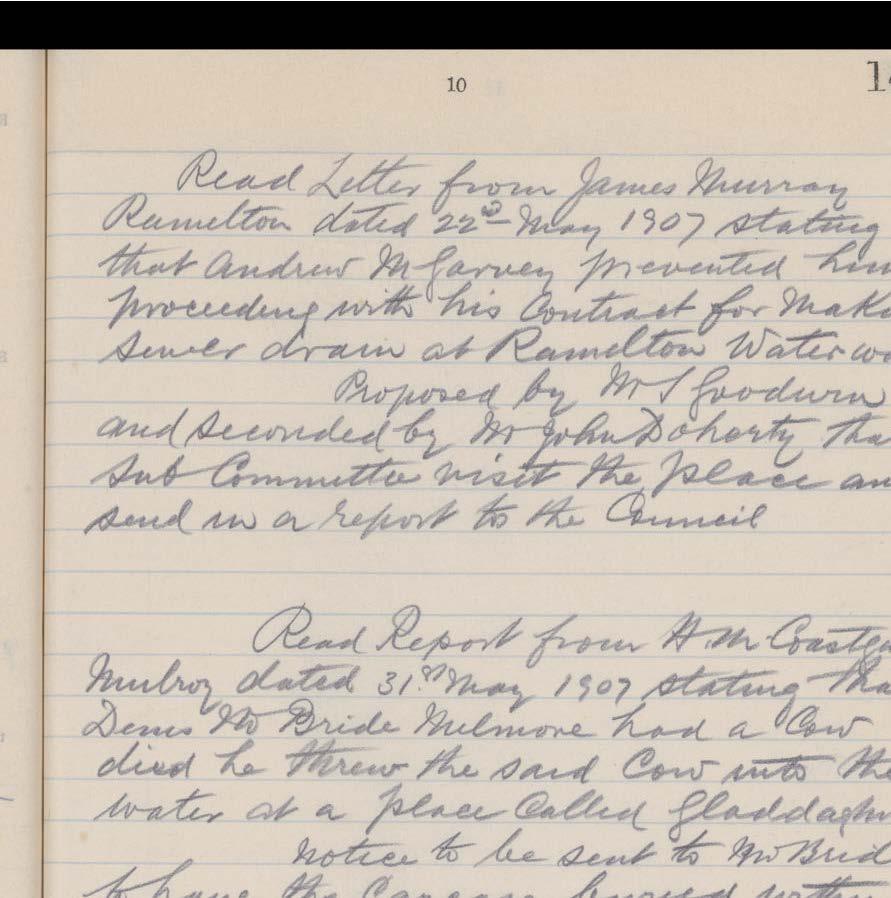 10
Read Letter from James Murray
Ramelton dated 22nd May 1907 stating
that Andrew McGarvey prevented him
proceeding with his Contract for Maki
sewer drain at Ramelton Waterwo
Proposed by Mr S Goodwin
and seconded by Mr John Doherty tha
Sub Committee visit the place an
send in a report to the Council
Read Report from H.M. Coastgu
Mulroy dated 31st May 1907 stating tha
Denis McBride Melmore had a Cow
died he threw the said Cow into the
water at a place Called
Notice to be sent to McBrid
to have the Carcase buried within